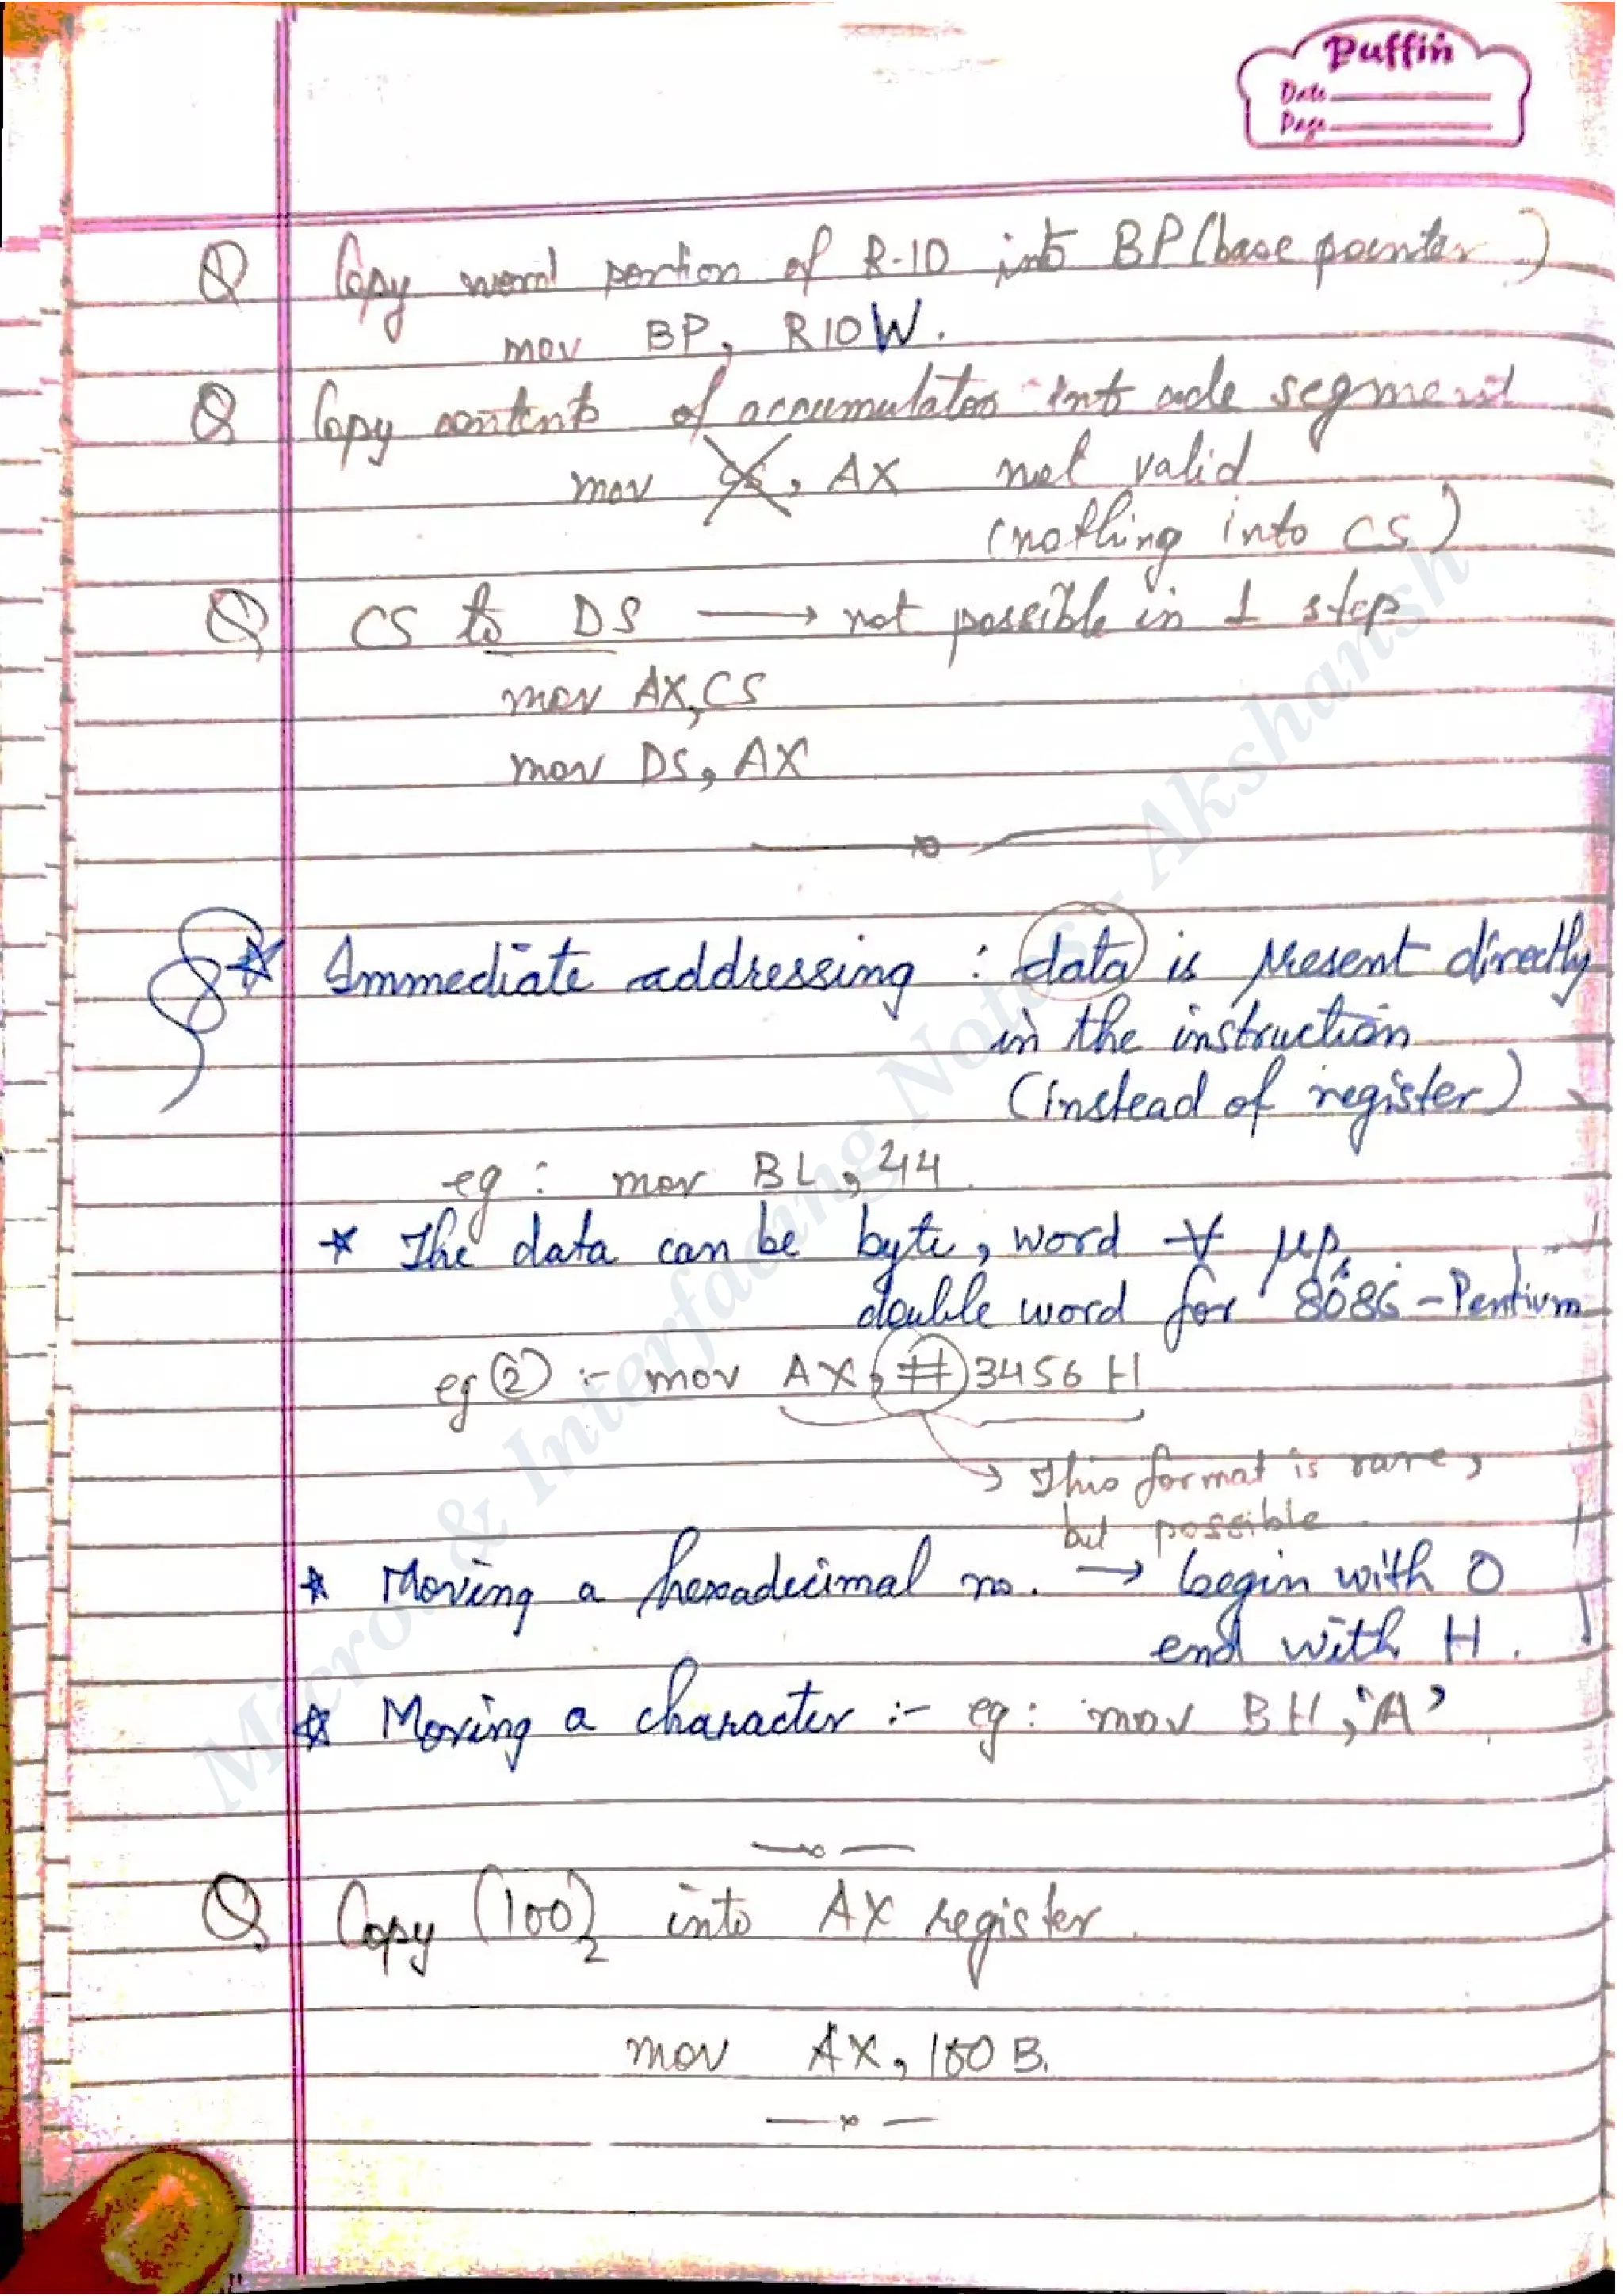 Puffin
Date
Page
Q Copy word portion of R-10 into BP (base pointer)
mov BP, R10W.
Q Copy contents of accumulator into code segment
mov CS, AX not valid
(nothing into CS)
Q CS to DS → not possible in 1 step
mov AX, CS
mov DS, AX
☆ Immediate addressing : data is present directly
in the instruction
(instead of register)
eg : mov BL, 44
* The data can be byte, word ∀ μp.
double word for 8086 - Pentium
eg ② :- mov AX, # 3456 H
→ This format is rare,
but possible
* Moving a hexadecimal no. → begin with 0
end with H.
* Moving a character :- eg : mov BH, 'A'
Q Copy (100)₂ into AX register.
mov AX, 100 B.
Micro & Interfacing Notes - Akshansh